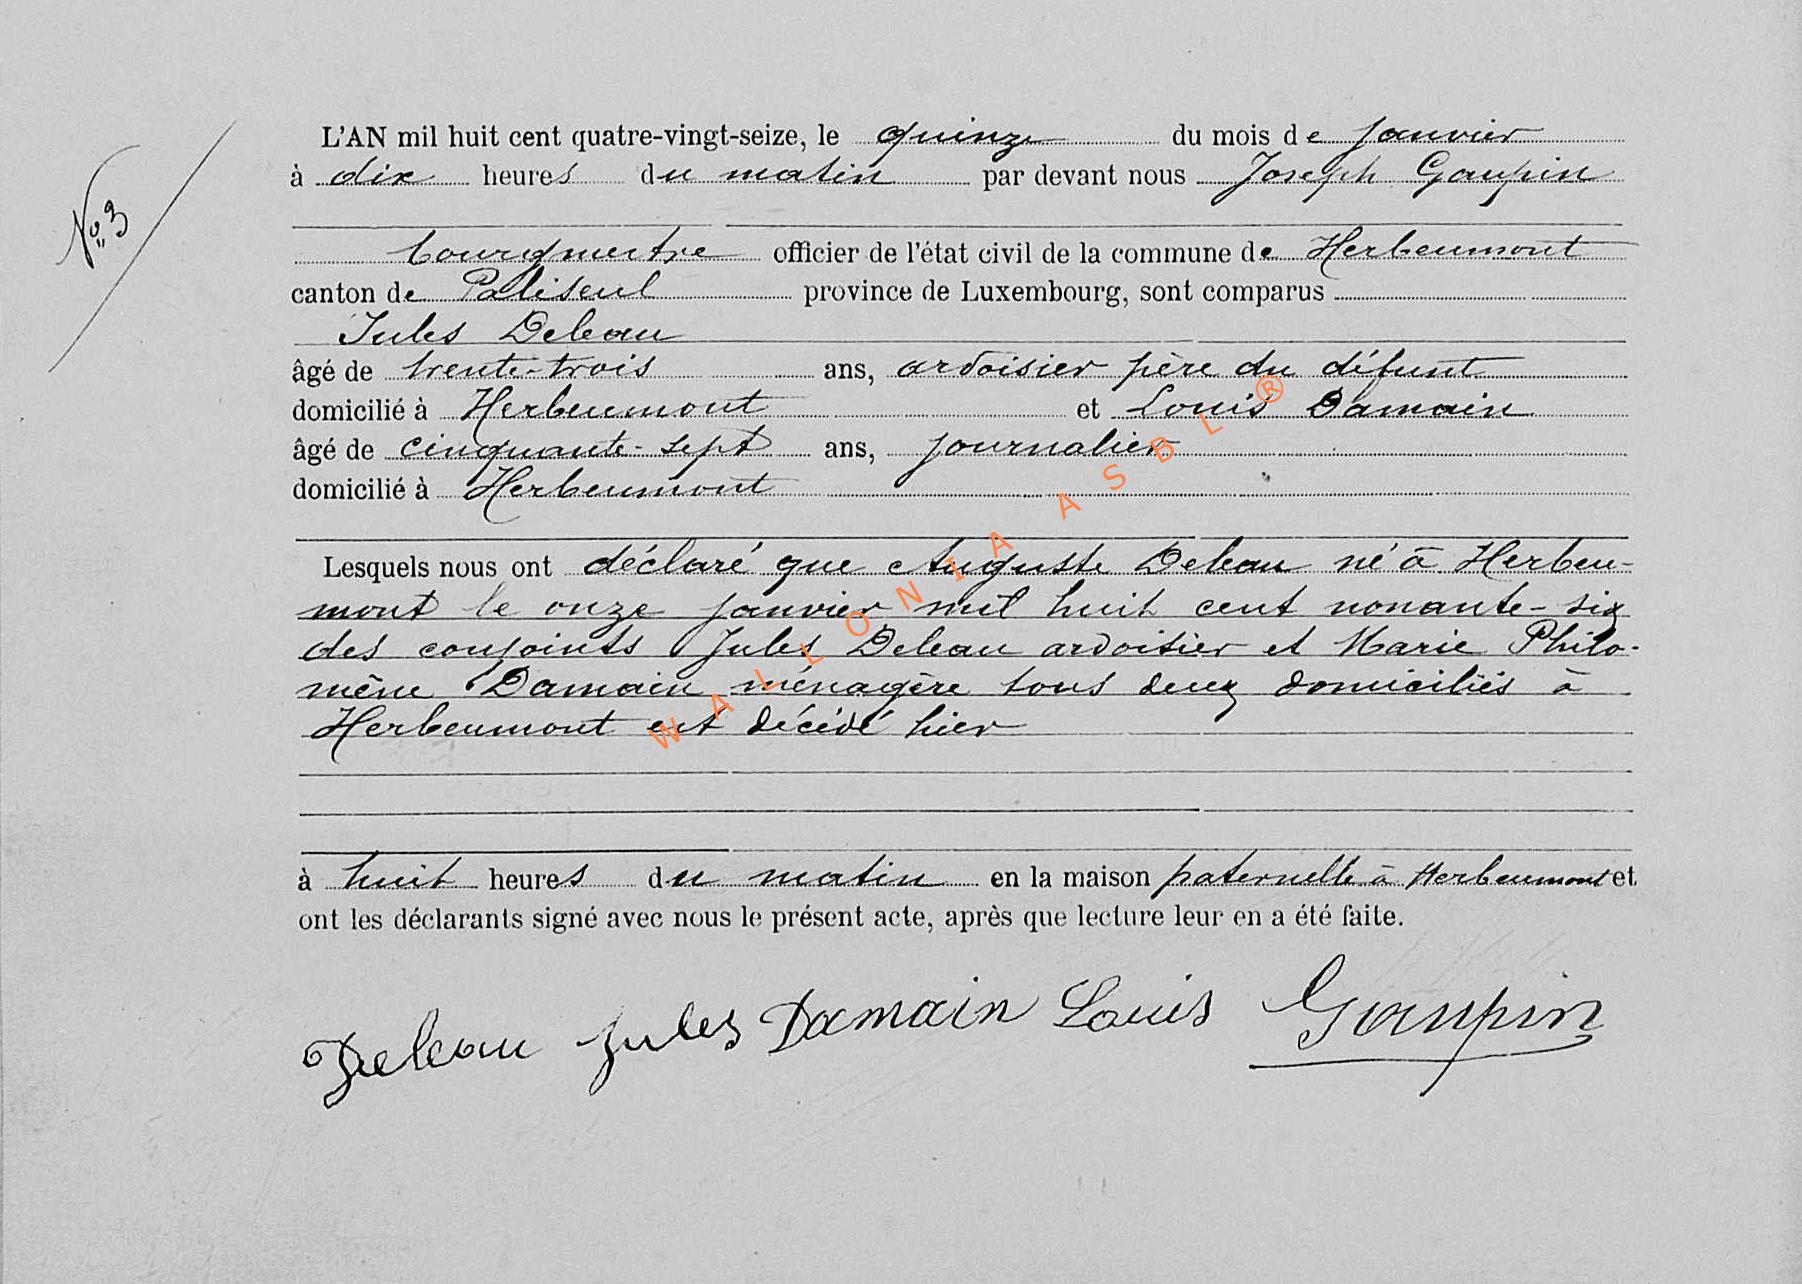 N° 3
L'AN mil huit cent quatre-vingt-seize, le quinze du mois de janvier
à dix heures du matin par devant nous Joseph Gaupin
bourgmestre officier de l'état civil de la commune de Herbeumont
canton de Paliseul province de Luxembourg, sont comparus
Jules Deleau
âgé de trente-trois ans, ardoisier père du défunt
domicilié à Herbeumont et Louis Damain
âgé de cinquante-sept ans, journalier
domicilié à Herbeumont
Lesquels nous ont déclaré que Auguste Deleau né à Herbeu-
mont le onze janvier mil huit cent nonante-six
des conjoints Jules Deleau ardoisier et Marie Philo-
mène Damain ménagère tous deux domiciliés à
Herbeumont est décédé hier
à huit heures du matin en la maison paternelle à Herbeumont et
ont les déclarants signé avec nous le présent acte, après que lecture leur en a été faite.
Deleau Jules Damain Louis Gaupin
WALLONIA ASBL ®